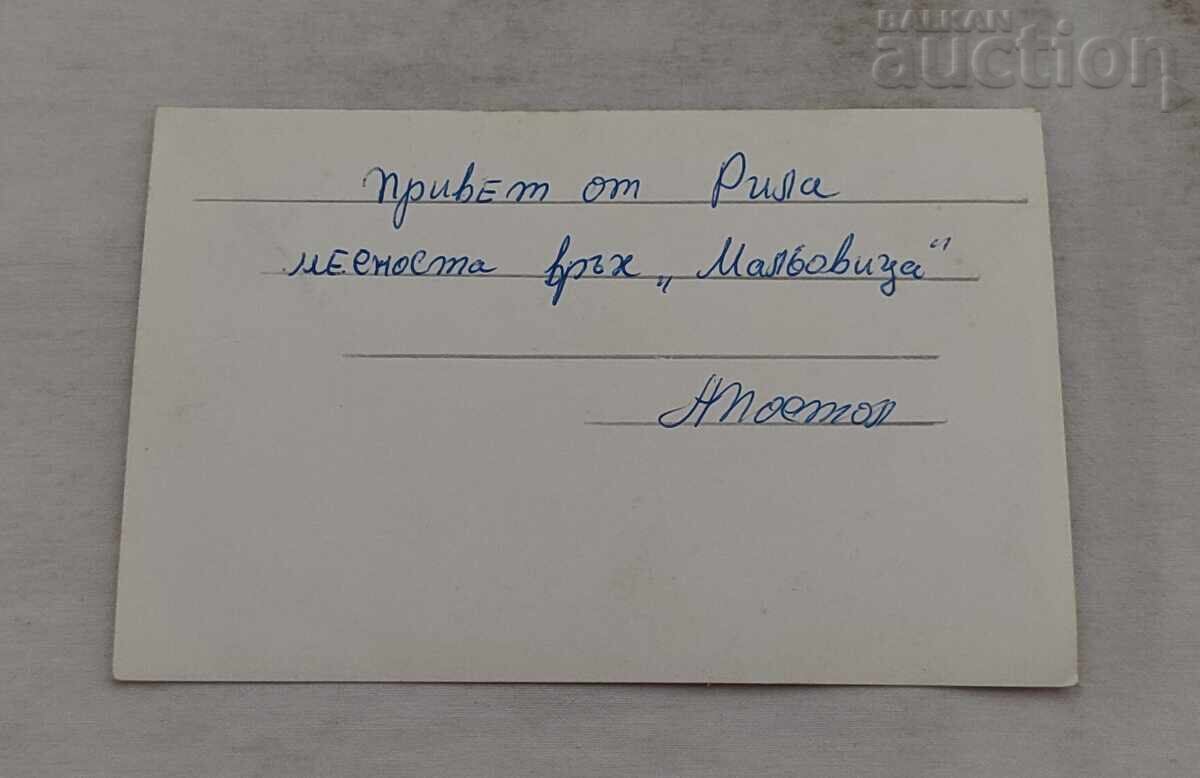 BALKAN
auction
Привет от Рила
месноста връх „Мальовица"
Апостол